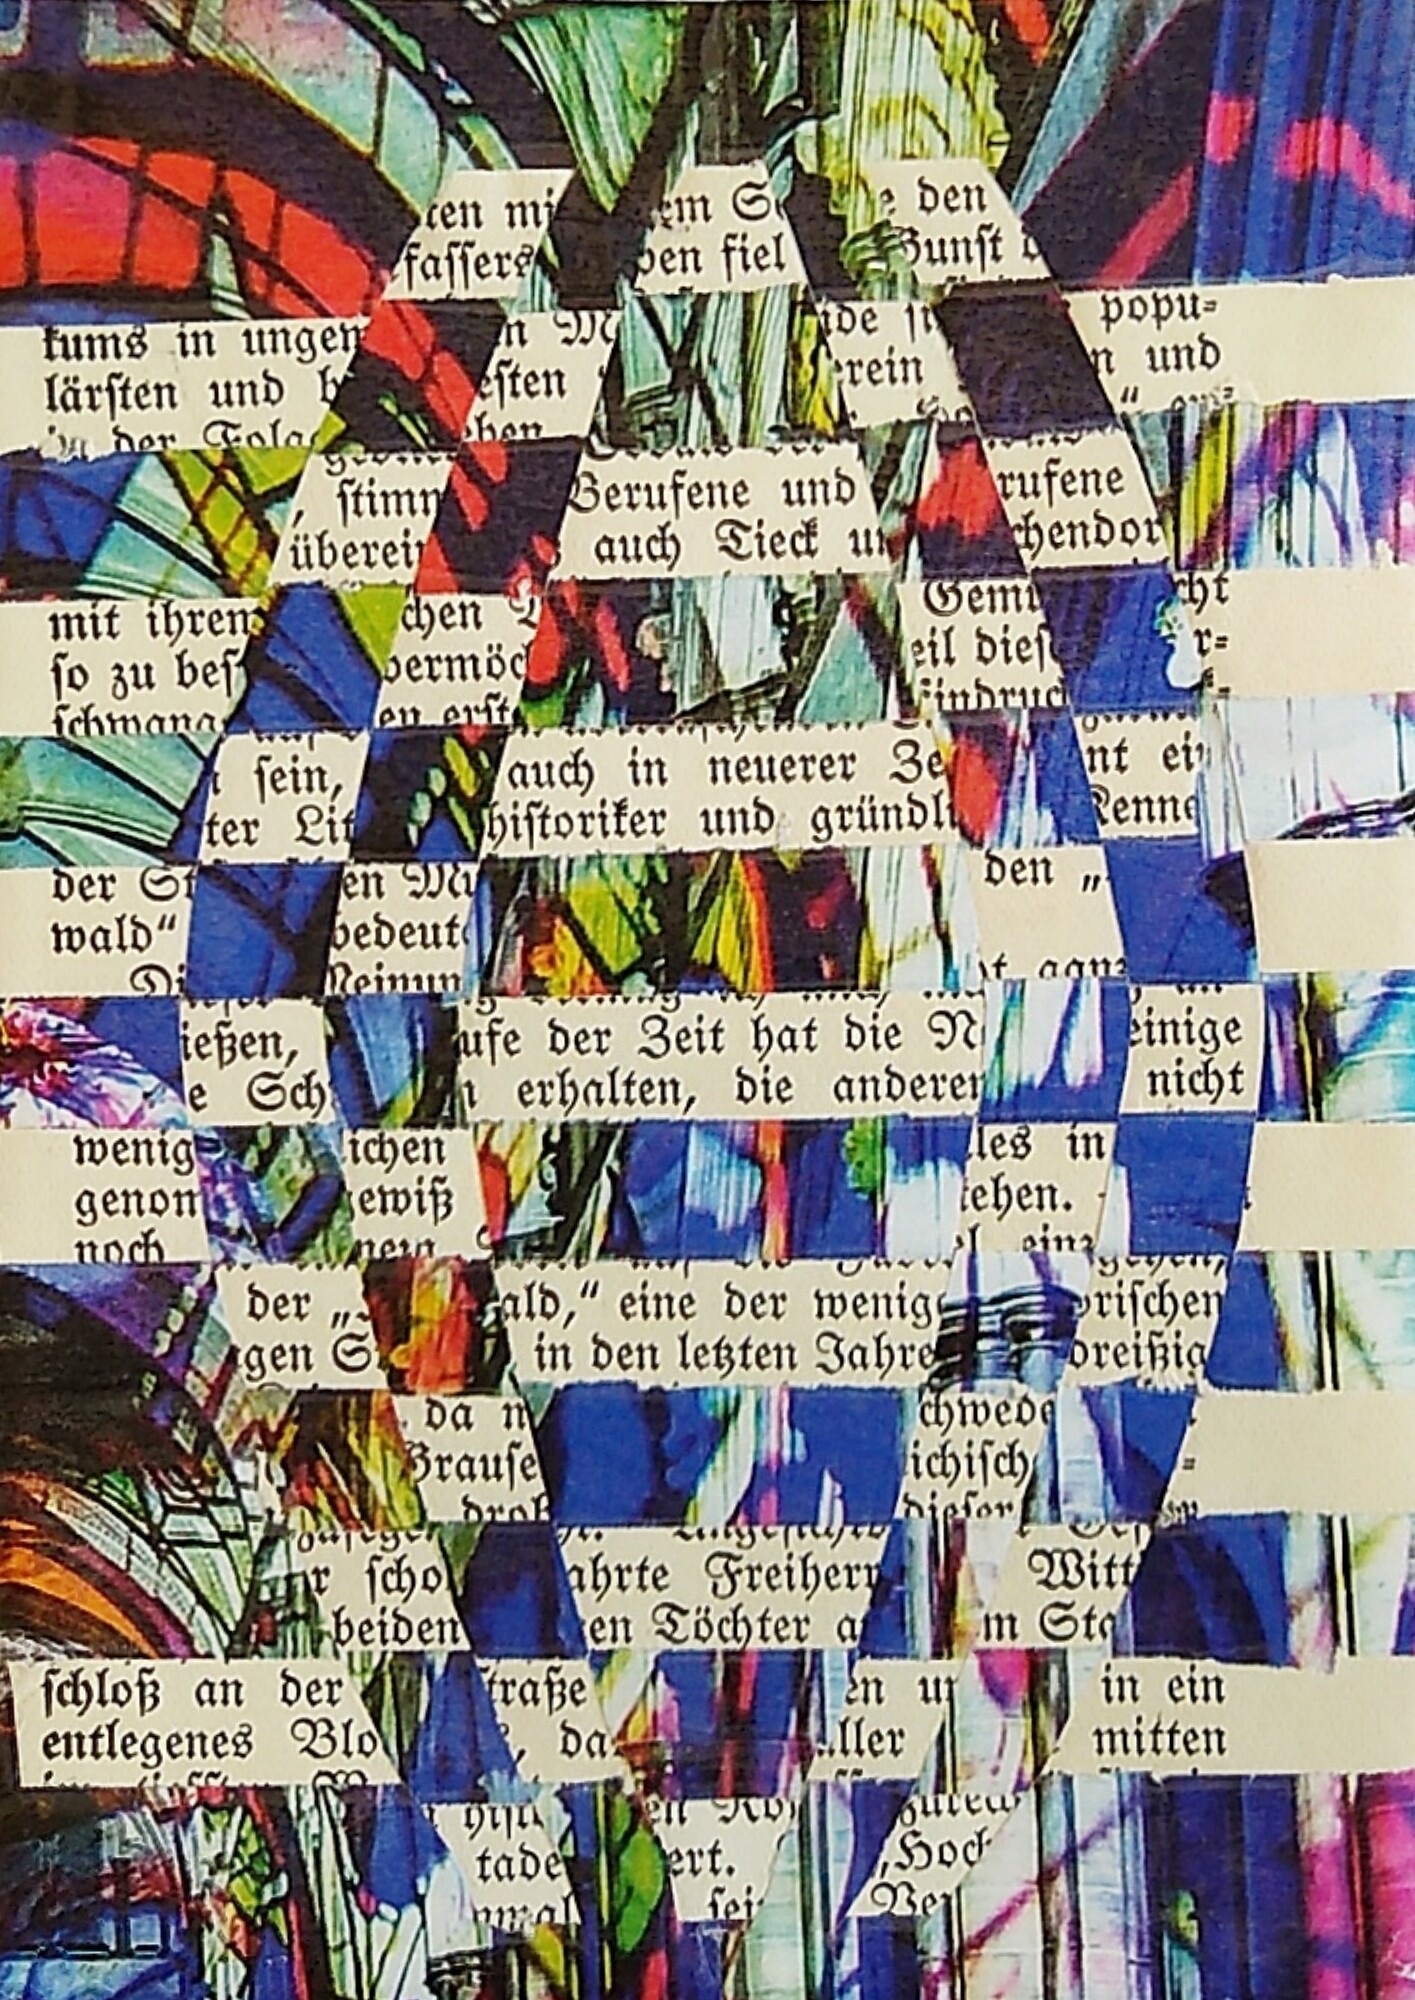 ten mi em S e den
fassers ben fiel Gunst
kums in ungem n M ide popu=
lärsten und b esten erein n und
in der Folge hen
, stimm Berufene und rufene
überein auch Tieck un chendor
mit ihrem chen Gemü cht
so zu bes vermöc eil diese r=
schwang en erst Eindruck
sein, auch in neuerer Ze nt ein
ter Lit historiker und gründli Kenne
der St en Mu den „
wald“ bedeut
Di Meinun t ganz
ießen, ufe der Zeit hat die N einige
e Sch n erhalten, die anderen nicht
wenig ichen les in
genom gewiß tehen.
noch einz
der „ ald,“ eine der wenige orischen
gen S in den letzten Jahre dreißig
da n chwede
Brause ichisch =
droh dieser
r scho ahrte Freiherr Witt
beiden en Töchter a m Sta
schloß an der Straße en un in ein
entlegenes Blo , da aller mitten
hist en Ro
tade ert. „Hoch
nmal sei Ver